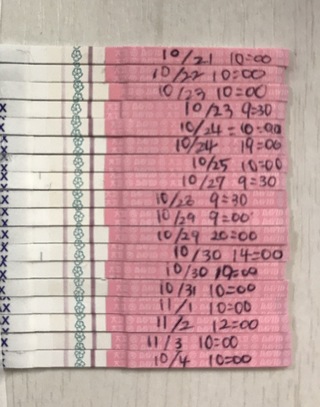 10/21 10=00
10/22 10=00
10/23 10=00
10/23 9=30
10/24=10=00
10/24 19=00
10/25 10=00
10/27 9=30
10/28 9=30
10/29 9=00
10/29 20=00
10/30 14=00
10/30 19=00
10/31 10=00
11/1 10=00
11/2 12=00
11/3 10=00
10/4 10=00